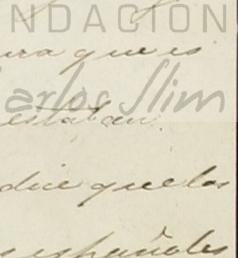 NDACIÓN
ra que es
Carlos Slim
estaban.
dice que los
españoles